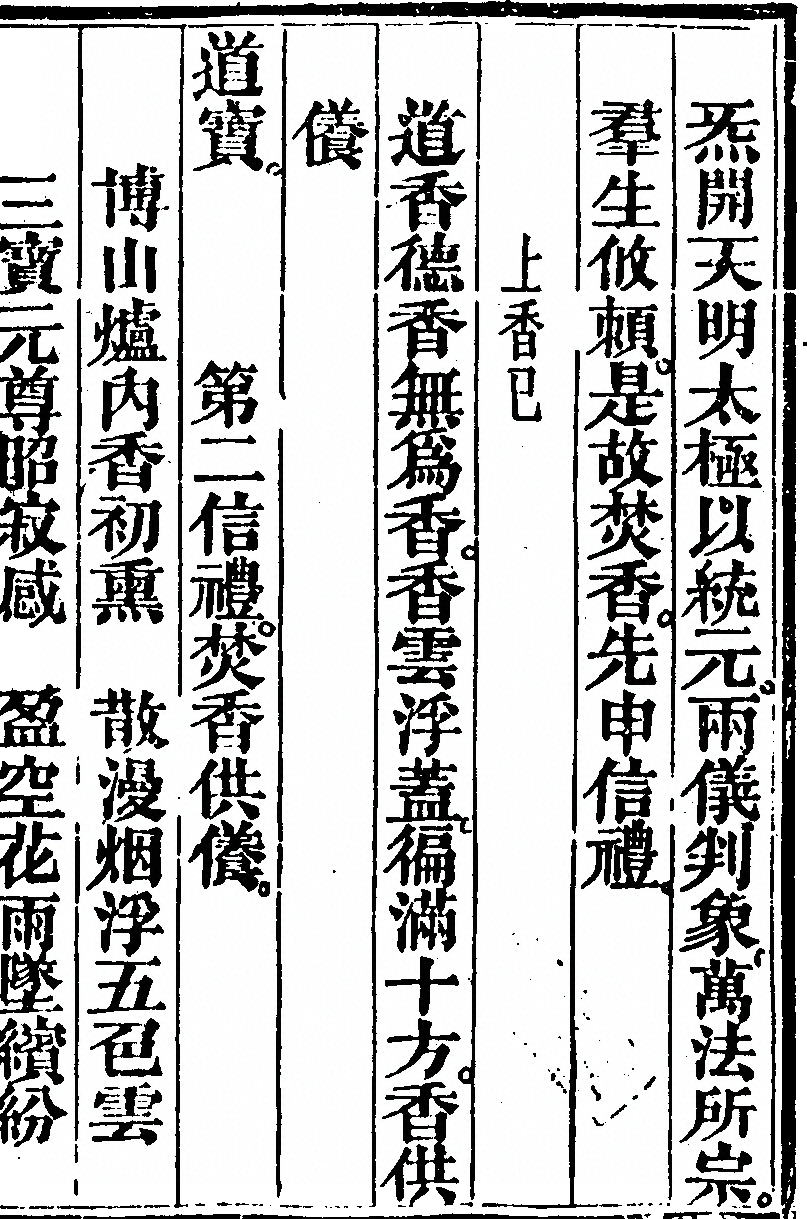 炁開天明太極以統元。兩儀判象、萬法所宗。
羣生攸頼。是故焚香。先申信禮。
上香已
道香德香無爲香。香雲浮蓋、徧滿十方。香供
養
道寶。　第二信禮。焚香供養。
博山爐內香初熏　散漫烟浮五色雲
三寶元尊昭寂感　盈空花雨墜繽紛